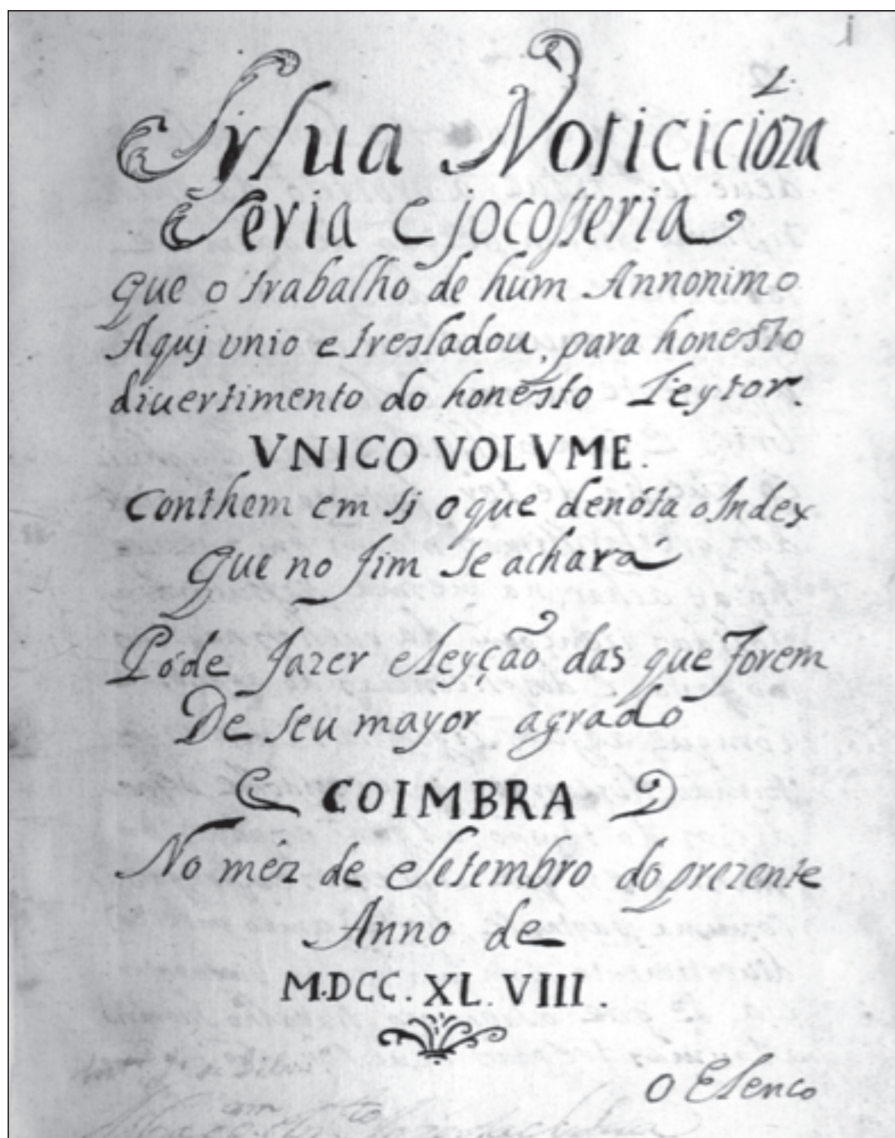 1
2.
Sylua Noticicioza
Séria e jocosseria
Que o trabalho de hum Annonimo
Aquj vnio e tresladou, para honesto
diuertimento do honesto Leytor.
VNICO VOLVME.
Conthem em sj o que denóta o Index
Que no fim se achará
Póde fazer eleyção das que forem
De seu mayor agrado
COIMBRA
No méz de Setembro do prezente
Anno de
M.DCC.XL.VIII.
O Elenco